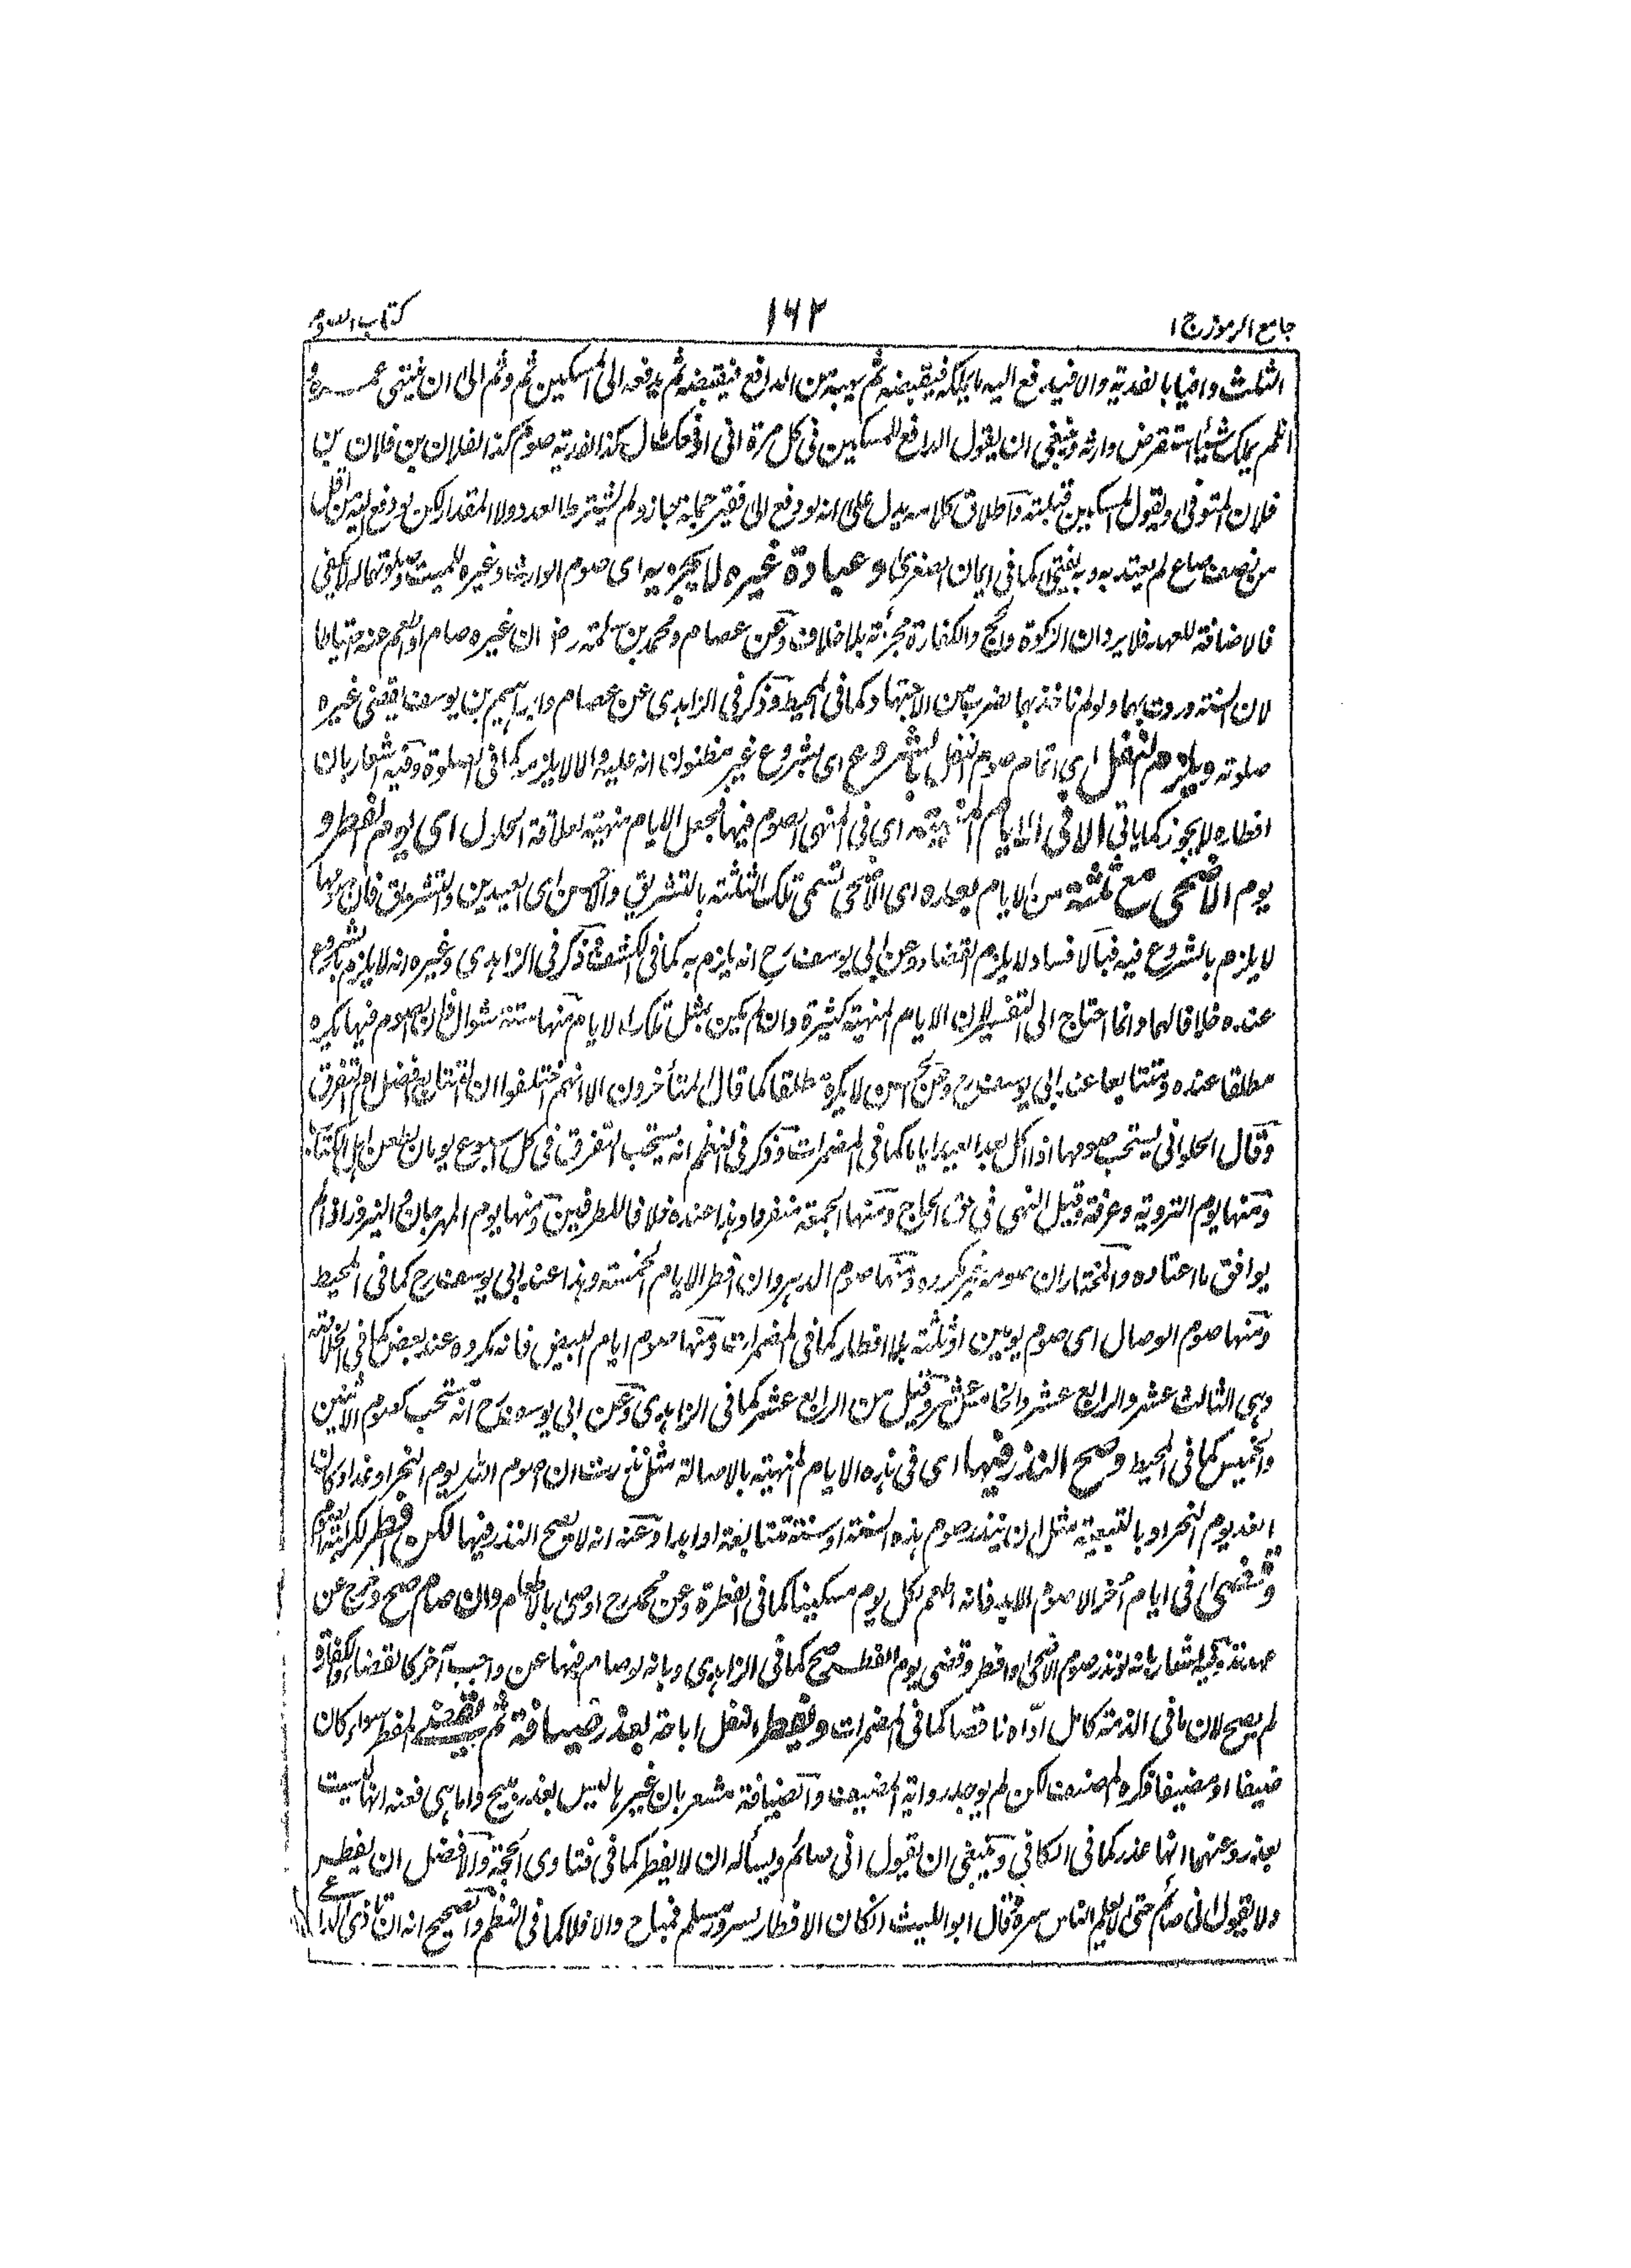 جامع الرموز ج ١
١٦٢
كتاب الصوم
الثلث وافيا بالفدية والا فيدفع اليه ما يملكه فيقبضه ثم يهبه من الدافع فيقبضه ثم يدفعه الى المسكين ثم وثم الى ان ينتهى عمره
فان لم يملك شيئا استقرض وارثه وينبغى ان يقول الدافع للمسكين فى كل مرة انى ادفعك مال كذا لفدية صوم كذا لفلان بن فلان بن
فلان المتوفى ويقول المسكين قبلته واطلاق كلامه يدل على انه لو دفع الى فقير جملة جاز ولم يشترط العدد ولا المقدار لكن لو دفع اليه من اقل
من نصف صاع لم يعتد به وبه يفتى كما فى ايمان الصغرى وعبادة غيره لا يجزيه اى صوم الوارث وغيره للميت وصلوتهما له لا يكفى
فالاضافة للعهد فلا يرد ان الزكوة والحج والكفارة مجزئة بلا خلاف وعن عصام ومحمد بن سلمة رض ان غيره صام او اطعم عنه احتياطا
لان السنة وردت بها ولو لم نأخذ بها لضرب من الاجتهاد كما فى المحيط وذكر فى الزاهدى عن عصام وابراهيم بن يوسف يقضى غيره
صلوته ويلزم النفل اى اتمام صوم النفل بالشروع اى بشروع غير مظنون انه عليه والا لا يلزم كما فى الصلوة وفيه اشعار بان
افطاره لا يجوز كما ياتى الا فى الايام المنهية اى فى المنهى الصوم فيها فجعل الايام منهية لعلاقة الحلول اى يوم الفطر و
يوم الاضحى مع ثلثة من الايام بعده اى الاضحى تسمى تلك الثلثة بالتشريق اى العيدين والتشريق فان صومها
لا يلزم بالشروع فيه فبالافساد لا يلزم القضاء وعن ابى يوسف رح انه يلزم به كما فى الكشف وذكر فى الزاهدى وغيره انه لا يلزم بالشروع
عنده خلافا لهما وانما احتاج الى التفسير لان الايام المنهية كثيرة وان لم يكن بمثل تلك الايام منها ستة شوال فان الصوم فيها يكره
مطلقا عنده ومتتابعا عند ابى يوسف رح وعن الحسن لا يكره مطلقا كما قال المتأخرون الا انهم اختلفوا ان التتابع افضل ام التفرق
وقال الحلوانى يستحب صومها اذا اكل بعد العيد اياما كما فى المضمرات وذكر فى النظم انه يستحب التفرق فى كل اسبوع يومان
ومنها يوم التروية وعرفة وقيل النهى فى حق الحاج ومنها الجمعة منفردا وهذا عنده خلافا للطرفين ومنها يوم المهرجان والنيروز اذا لم
يوافق ما اعتاده والمختار ان صومه غير مكروه ومنها صوم الدهر وان افطر الايام الخمسة وهذا عند ابى يوسف رح كما فى المحيط
ومنها صوم الوصال اى صوم يومين او ثلثة بلا افطار كما فى المضمرات ومنها صوم ايام البيض فانه مكروه عند بعض كما فى الخلاصة
وهى الثالث عشر والرابع عشر والخامس عشر وقيل من الرابع عشر كما فى الزاهدى وعن ابى يوسف رح انه مستحب كصوم الاثنين
والخميس كما فى المحيط وصح النذر فيها اى فى هذه الايام المنهية بالاصالة مثل نذرت ان اصوم لله يوم النحر او غدا وكان
الغد يوم النحر او بالتبعية مثل ان ينذر صوم هذه السنة او سنة متتابعة او ابدا وعنه انه لا يصح النذر فيها لكن افطر لكراهة الصوم
وقضى فى ايام اخر الا صوم الابد فانه اطعم لكل يوم مسكينا كما فى الفطرة وعن محمد رح اوصى بالاطعام وان صام صح وخرج عن
عهدته وفيه اشعار بانه لو نذر صوم الاضحى وافطر وقضى يوم الفطر صح كما فى الزاهدى وبانه لو صام فيها عن واجب آخر كالقضاء والكفارة
لم يصح لان ما فى الذمة كامل اداه ناقصا كما فى المضمرات ويفطر النفل اباحة بعذر ضيافة ثم يقضى المفطر سواء كان
ضيفا او مضيفا ذكره المصنف لكن لم يوجد رواية المضيف والضيافة مشعر بان غيرها ليس بعذر مبيح واما هى فعنه انها ليست
بعذر وعنهما انها عذر كما فى الكافى وينبغى ان يقول انى صائم ويسأله ان لا يفطر كما فى فتاوى الحجة والافضل ان يفطر
ولا يقول انى صائم حتى لا يعلم الناس سره وقال ابو الليث ان كان الافطار لسرور مسلم فمباح والا فلا كما فى النظم والصحيح انه ان تأذى الداعى